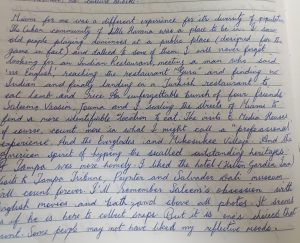 Miami for me was a different experience for its diversity of
the Cuban community of little Havana was a place to be in. I saw
old people playing dominoes at a public place designed for the
game in fact I also talked to some of them. I will never forget
looking for an Indian Restaurant, meeting a man who said
no English, reaching the restaurant "Guru" and finding no
Indian and finally landing in a Turkish restaurant to
eat lamb and rice. The unforgettable bunch of four friends
Saleem, Fauna and I scaling the streets of Miami to
find a more identifiable location to eat. The visits to Media Houses
of course, count more in what I might call a "professional
experience. And the Everglades and Mikosukee Village. And the
American spirit of hyping the smallest outstanding heritages
of Tampa was more homely. I liked the hotel
visits to Tampa Tribune, Poynter and Salvador Dali museum
will count forever. I'll remember Saleem's obsession with
English movies and above all photos. It seems
if he is here to collect snaps. But it is one's choice that
count. Some people may not have liked my reflective moods.